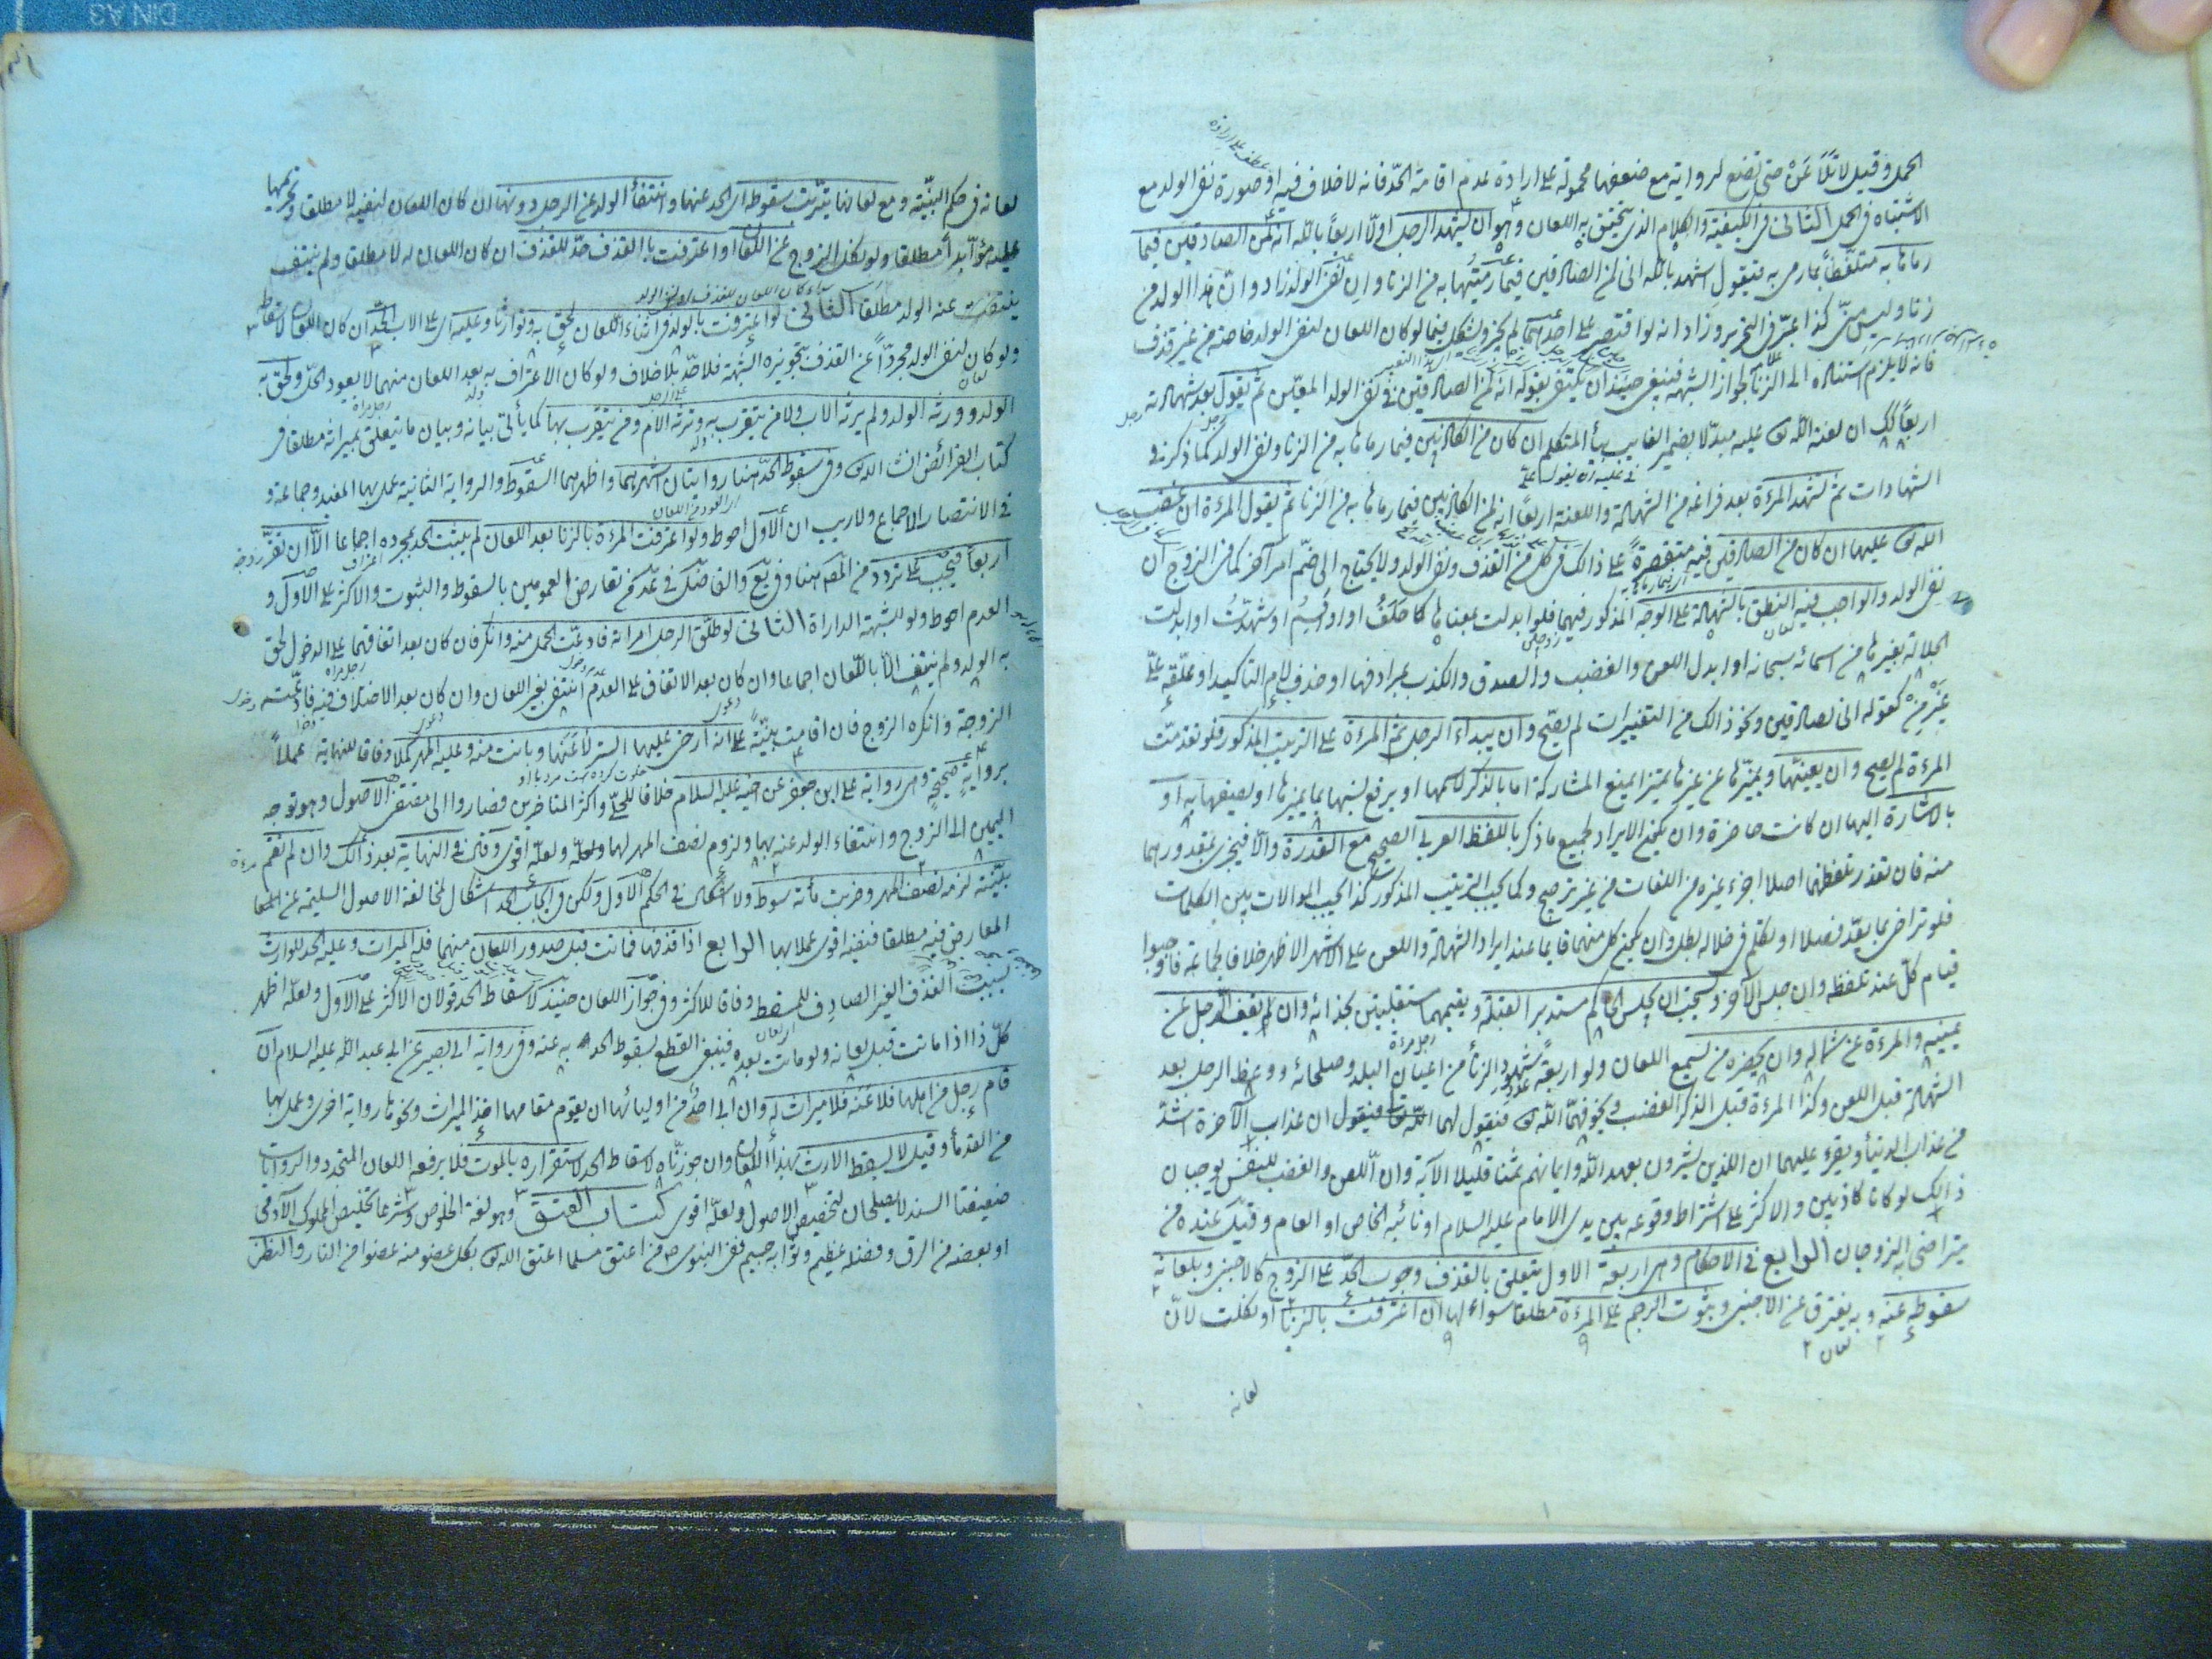 الحمل وقيل لا تلاعن حتى تضع لرواية مع ضعفها محمولة على ارادة عدم اقامة الحد فانه لا خلاف فيه او صورة نفى الولد مع
الاشتباه فى الحمل الثانى فى الكيفية والكلام الذى يتحقق به اللعان وهو ان يشهد الرجل اولا اربعا بالله انه لمن الصادقين فيما
رماها به متلفظا بما رمى به فيقول اشهد بالله انى لمن الصادقين فيما رميتها به من الزنا وان نفى الولد زاد وان هذا الولد من
زنا وليس منى كذا عبر فى التحرير وزاد انه لو اقتصر على احدهما لم يجز ويشكل فيما لو كان اللعان لنفى الولد خاصة من غير قذف
فانه لا يلزم استناده الى الزنا لجواز الشبهة فينبغى حينئذ ان يكتفى بقوله انه لمن الصادقين فى نفى الولد المعين ثم يقول بعد شهادته
اربعا كك ان لعنة الله عليه مبدلا بضمير الغايب بيأ المتكلم ان كان من الكاذبين فيما رماها به من الزنا ونفى الولد كما ذكر فى
الشهادات ثم تشهد المرءة بعد فراغه من الشهادة واللعنة اربعا انه لمن الكاذبين فيما رماها به من الزنا ثم يقول المرءة ان غضب
الله عليها ان كان من الصادقين فيه مقتصرة على ذالك فى كل من القذف ونفى الولد ولا يحتاج الى ضم امر آخر كما فى الزوج ان
نفى الولد والواجب فيه النطق بالشهادة على الوجه المذكور فيهما فلو ابدلت بمعناها كاحلف او اقسم او شهدت او ابدلت
الجلالة بغيرها من اسمائه سبحانه او ابدل اللعن والغضب والصدق والكذب بمرادفها او حذف لام التاكيد او علقه على
غير من كقوله انى لصادقين ونحو ذالك من التغييرات لم يصح وان يبداء الرجل ثم المرءة على الترتيب المذكور فلو تقدمت
المرءة لم يصح وان يعينها ويميزها عن غيرها تميزا يمنع المشاركة اما بالذكر لاسمها او برفع نسبها بما يميزها او بصفتها به او
بالاشارة اليها ان كانت حاضرة وان يكون الايراد لجميع ما ذكر باللفظ العربى الصحيح مع القدرة والا فيجزى بمقدورهما
منه فان تعذر تلفظهما اصلا اجزء غيره من اللغات من غير ترجيح وكما يجب الترتيب المذكور كذا يجب الموالات بين الكلمات
فلو تراخى بما يعد فصلا او تكلم فى خلاله بطل وان يكون كل منهما قايما عند ايراد الشهادة واللعن على الاشهر الاظهر خلافا لجماعة فاوجبوا
قيام كل عند تلفظه وان جلس الآخر ويستحب ان يجلس الحاكم مستدبر القبلة ويقيمهما مستقبلين بحذائه وان يقف الرجل عن
يمينه والمرءة عن شماله وان يحضره من يسمع اللعان ولو اربعة عدد شهود الزنا من اعيان البلد وصلحائه ووعظ الرجل بعد
الشهادة قبل اللعن وكذا المرءة قبل الذكر الغضب ويخوفهما الله فيقول ان عذاب الآخرة اشد
من عذاب الدنيا ويقرء عليهما ان اللذين يشترون بعهد الله وايمانهم ثمنا قليلا الآية وان اللعن والغضب للنفس يوجبان
ذالك لو كانا كاذبين والاكثر على اشتراط وقوعه بين يدى الامام عليه السلام او نائبه الخاص او العام وقيل عنده من
يتراضى به الزوجان الرابع فى الاحكام وهى اربعة الاول يتعلق بالقذف وجوب الحد على الزوج كالاجنبى وبلعانه
سقوطه عنه وبه يفترق عن الاجنبى وثبوت الرجم على المرءة مطلقا سواء لها ان اعترفت بالزنا او نكلت لان
لعانه
لعانه فى حكم البينة ومع لعانها يترتب سقوطه اى الحد عنها وانتفأ الولد عن الرجل دونها ان كان اللعان لنفيه لا مطلقا وتحريمها
عليه مؤبدا مطلقا ولو نكل الزوج عن اللعان او اعترفت با القذف حد للقذف ان كان اللعان له لا مطلقا ولم ينتف
عنه الولد مطلقا الثانى لو اعترفت بالولد فى اثناء اللعان لحق به وتوارثا وعليه اى على الاب الحد ان كان اللعان لاسقاطه
ولو كان لنفى الولد مجردا عن القذف بتجويزه الشبهة فلا حد بلا خلاف ولو كان الاعتراف به بعد اللعان منهما لا يعود الحل ولحق به
الولد وورثه الولد ولم يرثه الاب ولا من يتقرب به وترثه الام ومن يتقرب بها كما يأتى بيانه وبيان ما يتعلق بميراثه مطلقا فى
كتاب الفرائض انشاء الله وفى سقوط الحد هنا روايتان اشهرهما واظهرهما السقوط والرواية الثانية عمل بها المفيد وجماعة و
فى الانتصار الاجماع ولا ريب ان الاول احوط ولو اعترفت المرءة بالزنا بعد اللعان لم يثبت الحد بمجرده اجماعا الا ان تقر
اربعا فيجب على تردد من المصّ هنا وفى يع والفاضل فى عد من تعارض العمومين بالسقوط والثبوت والاكثر على الاول و
العدم احوط ولو لشبهة الداراة الثالث لو طلق الرجل امراته فادعت الحمل منه وانكر فان كان بعد اتفاقهما على الدخول لحق
به الولد ولم ينتف الا باللعان اجماعا وان كان بعد الاتفاق على العدم انتفى بغير اللعان وان كان بعد الاختلاف فيه فادعته
الزوجة وانكره الزوج فان اقامت بينة على انه ارخى عليها الستر لاعنها وبانت منه وعليه المهر كملا وفاقا للنهاية عملا
برواية صحيحة وهى رواية على ابن جعفر عن اخيه عليه السلام خلافا للحلى واكثر المتاخرين فصاروا الى مقتضى الاصول وهو توجه
اليمين الى الزوج وانتفاء الولد عنه بها ولزوم نصف المهر لها ولعله اقوى وقال فى النهاية بعد ذالك وان لم تقم
بينة لزمه نصف المهر وضربت مأة سوط ولا اشكال فى الحكم الاول ولكن فى ايجاب الحد اشكال لمخالفة الاصول السليمة عن
المعارض فيه مطلقا فنفيه اقوى عملا بها الرابع اذا قذفها فماتت قبل صدور اللعان منهما فله الميراث وعليه الحد للوارث
بسبب القذف الغير الصادف للمسقط وفاقا للاكثر وفى جواز اللعان حينئذ لاسقاط الحد قولان الاكثر على الاول ولعله اظهر
كل ذا اذا ماتت قبل لعانه ولو ماتت بعده فينبغى القطع بسقوط الحد به عنه وفى رواية ابى بصير عن ابى عبد الله عليه السلام ان
قام رجل من اهلها فلاعنه فلا ميراث له وان ابى احد من اوليائها ان يقوم مقامها اخذ الميراث ونحوها رواية اخرى وعمل بها
من القدمأ وقيل لا يسقط الارث بهذا اللعان وان جوزناه لاسقاط الحد لاستقراره بالموت فلا يرفعه اللعان المتجدد والروايتان
ضعيفتا السند لا يصلحان لتخصيص الاصول ولعله اقوى كتاب العتق وهو لغة الخلوص وشرعا تخليص المملوك الآدمى
او بعضه من الرق وفضله عظيم وثوابه جسيم ففى النبوى ص من اعتق مسلما اعتق الله بكل عضو منه عضوا من النار